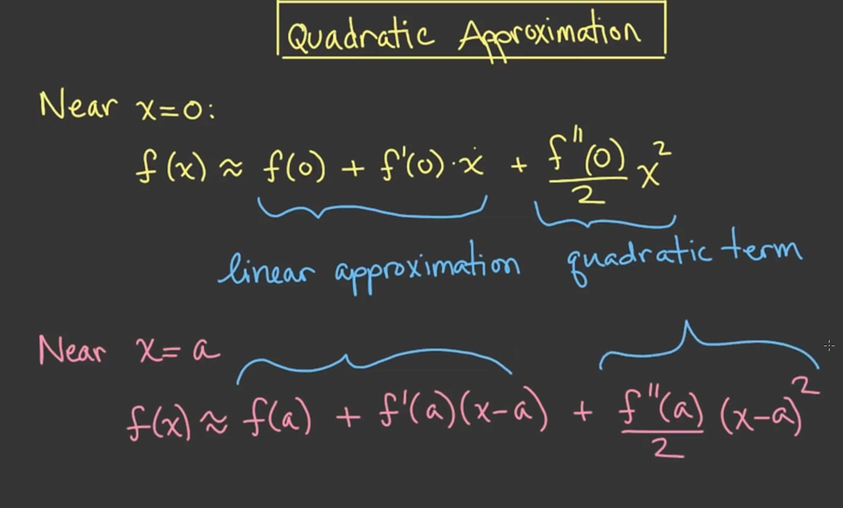 Quadratic Approximation
Near x=0:
f(x) ≈ f(0) + f'(0)·x + f''(0)/2 x²
linear approximation quadratic term
Near x=a
f(x) ≈ f(a) + f'(a)(x-a) + f''(a)/2 (x-a)²